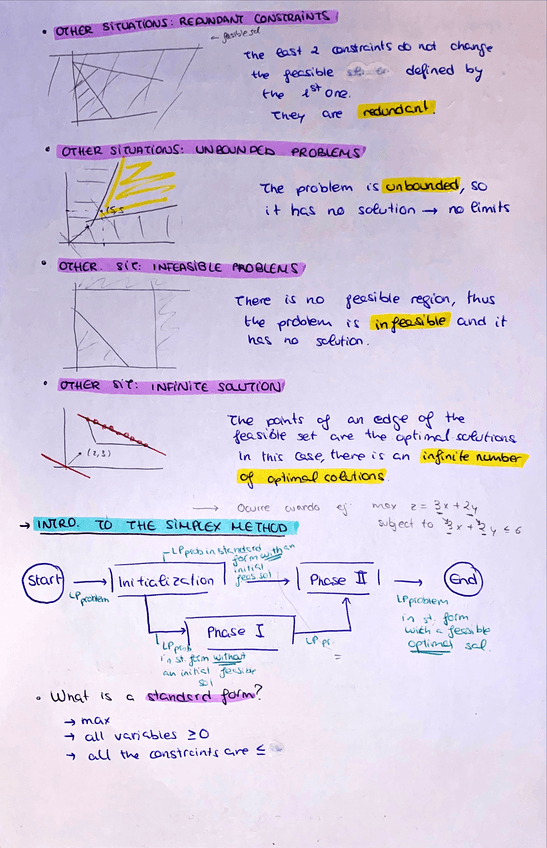 • OTHER SITUATIONS: REDUNDANT CONSTRAINTS
← feasible sol
The last 2 constraints do not change
the feasible defined by
the 1st one.
They are redundant.
• OTHER SITUATIONS: UNBOUNDED PROBLEMS
The problem is unbounded, so
it has no solution → no limits
• OTHER. SIT: INFEASIBLE PROBLEMS
There is no feasible region, thus
the problem is infeasible and it
has no solution.
• OTHER SIT: INFINITE SOLUTION
(2,3)
The points of an edge of the
feasible set are the optimal solutions
In this case, there is an infinite number
of optimal colutions.
→ Ocurre cuando ej: max z = 3x + 2y
subject to 3x + 2y ≤ 6
→ INTRO. TO THE SIMPLEX METHOD
LP prob in standard
form with an
initial
feas. sol
Start → Initialization → Phase II → End
LP problem
Phase I
LP prob
in st. form without
an initial feasible
sol
LP pr.
=
LP problem
in st. form
with a feasible
optimal sol.
• What is a standard form?
→ max
→ all variables ≥0
→ all the constraints are ≤